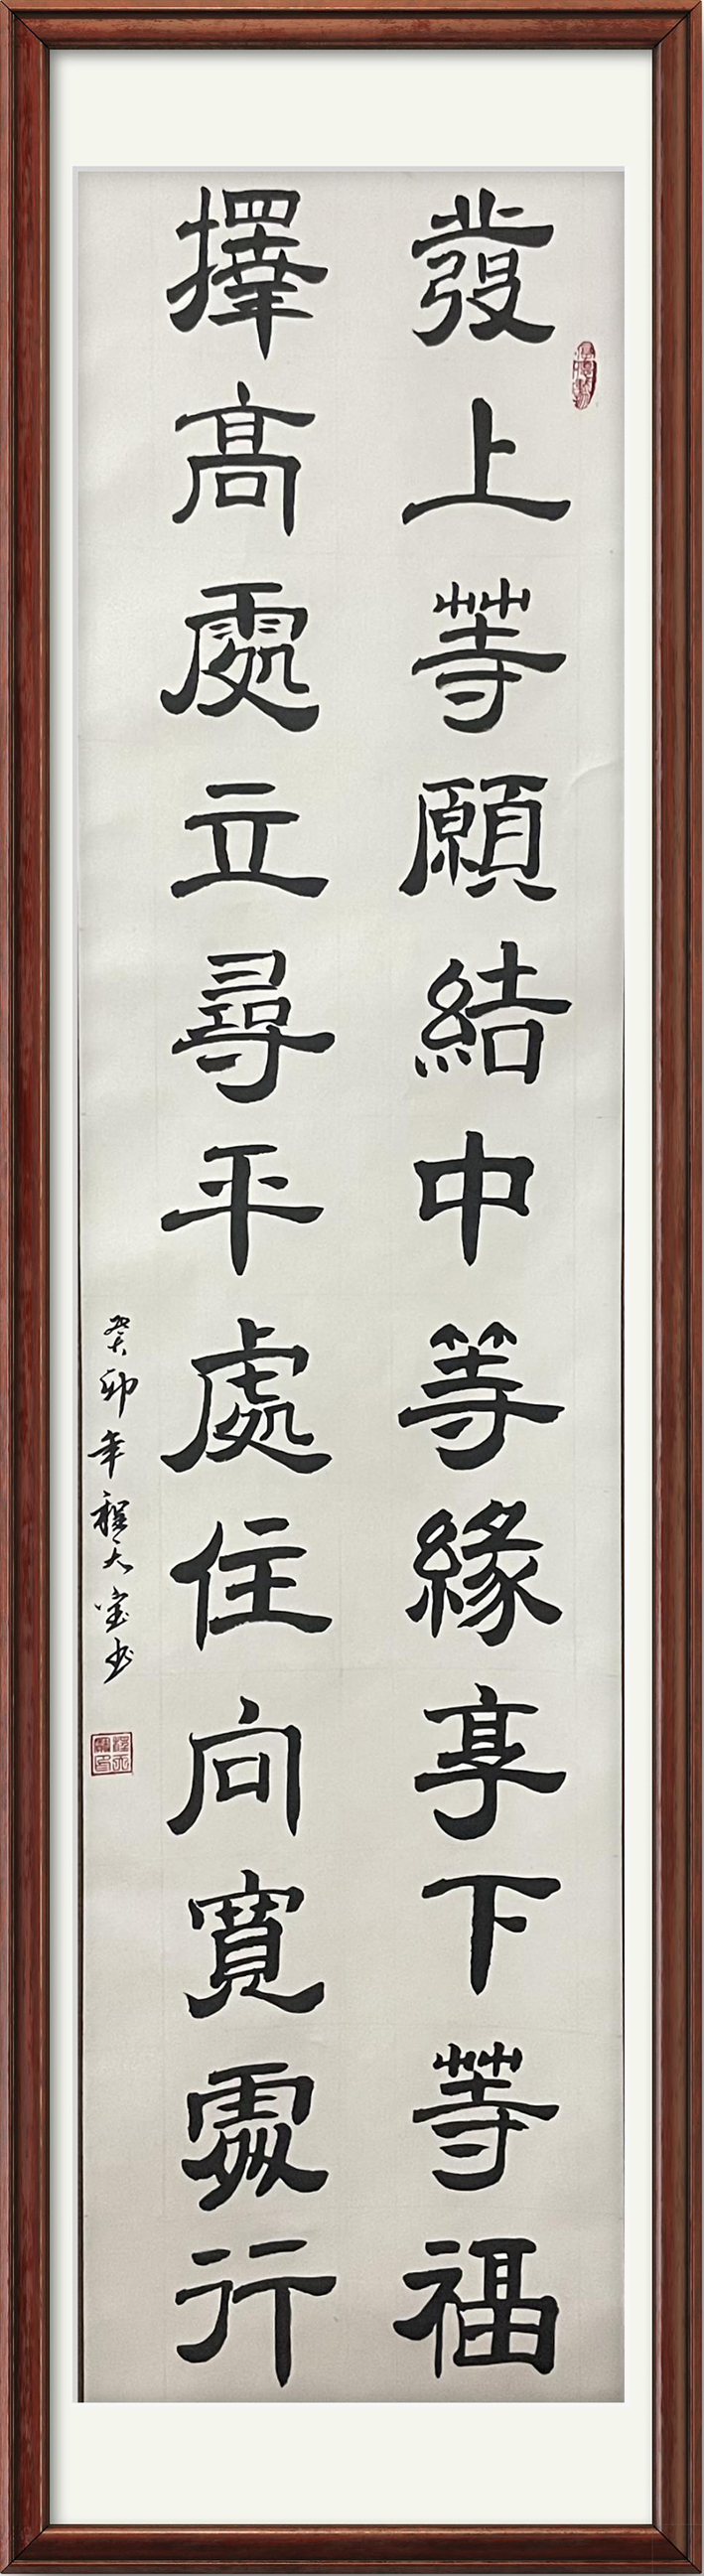 發上等願結中等緣享下等福
擇高處立尋平處住向寬處行
癸卯年程天寶书